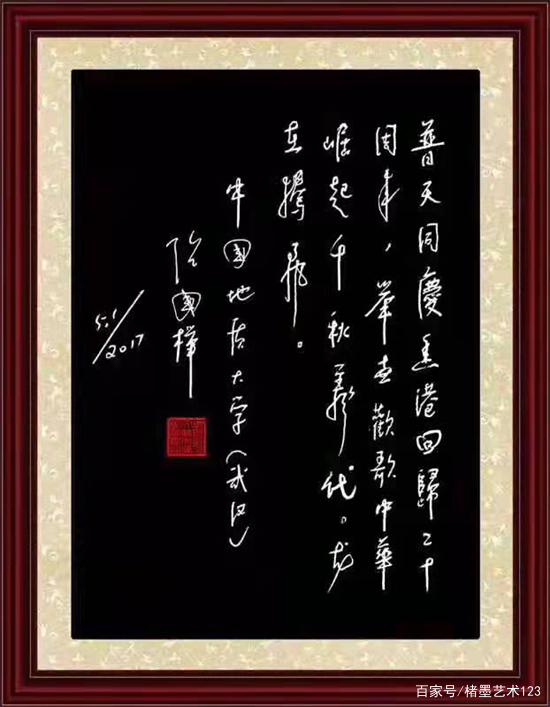 普天同慶香港回歸二十
周年，舉世歡歌中華
崛起千秋萬代。龙
在騰飛。
中國地质大学（武汉）
國樺
5.1/2017
百家号/楮墨艺术123